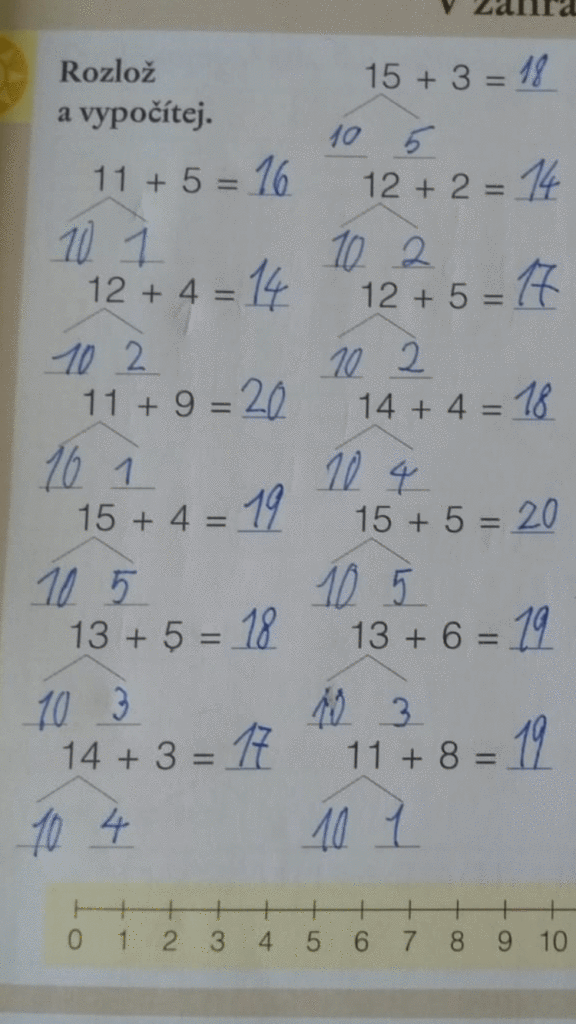 V zahra
Rozlož
a vypočítej.
11 + 5 = 16
10 1
12 + 4 = 14
10 2
11 + 9 = 20
10 1
15 + 4 = 19
10 5
13 + 5 = 18
10 3
14 + 3 = 17
10 4
15 + 3 = 18
10 5
12 + 2 = 14
10 2
12 + 5 = 17
10 2
14 + 4 = 18
10 4
15 + 5 = 20
10 5
13 + 6 = 19
10 3
11 + 8 = 19
10 1
0 1 2 3 4 5 6 7 8 9 10